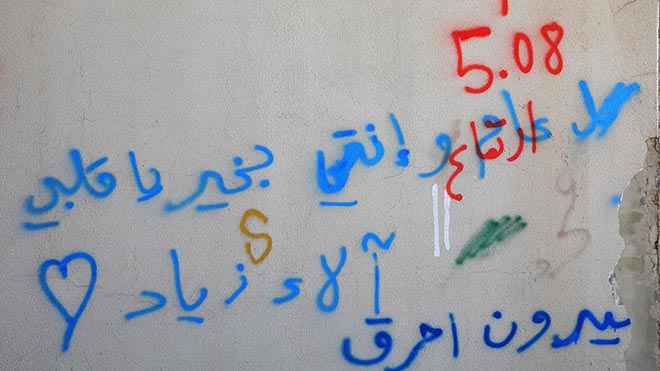 5.08
ارتفاع
كل عام و إنتي بخير يا قلبي
S
آلاء زياد
بيرون احرق